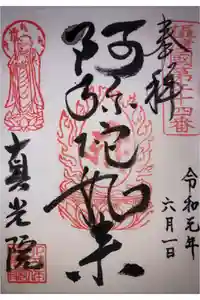 奉拝
第二十四番
阿弥陀如来
真光院
令和元年
六月一日